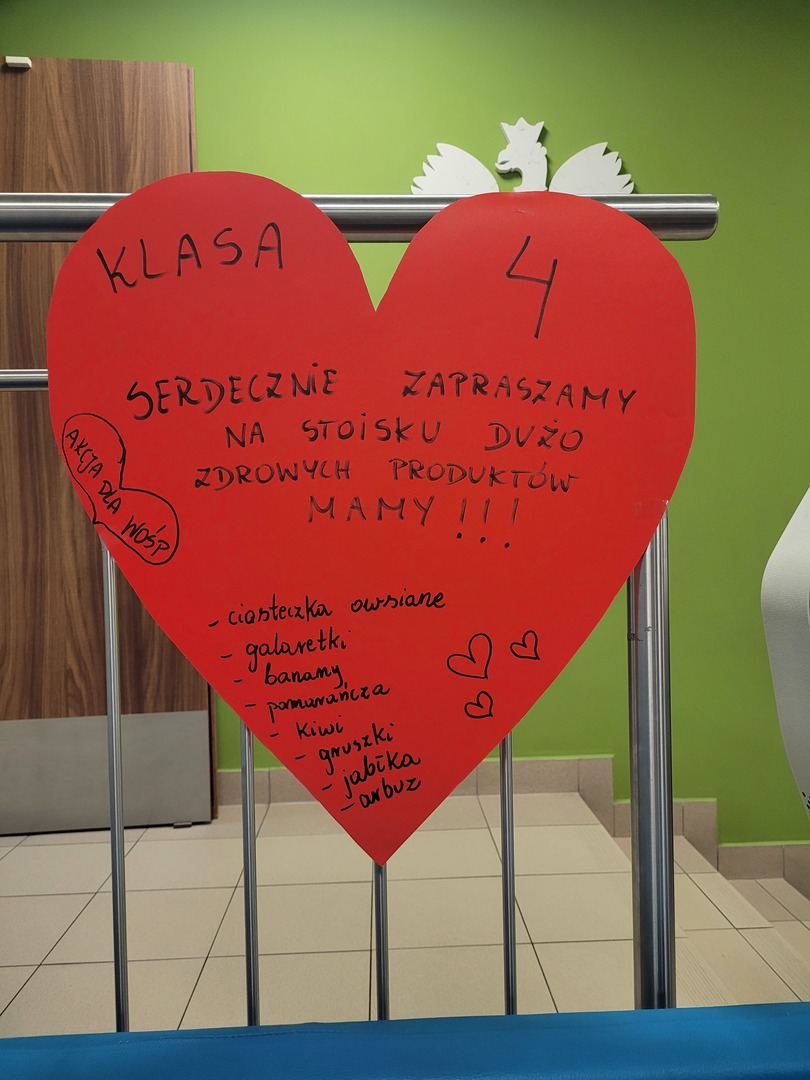 KLASA 4
SERDECZNIE ZAPRASZAMY
NA STOISKU DUŻO
ZDROWYCH PRODUKTÓW
MAMY!!!
AKCJA DLA WOŚP
- ciasteczka owsiane
- galaretki
- banany
- pomarańcza
- kiwi
- gruszki
- jabłka
- arbuz